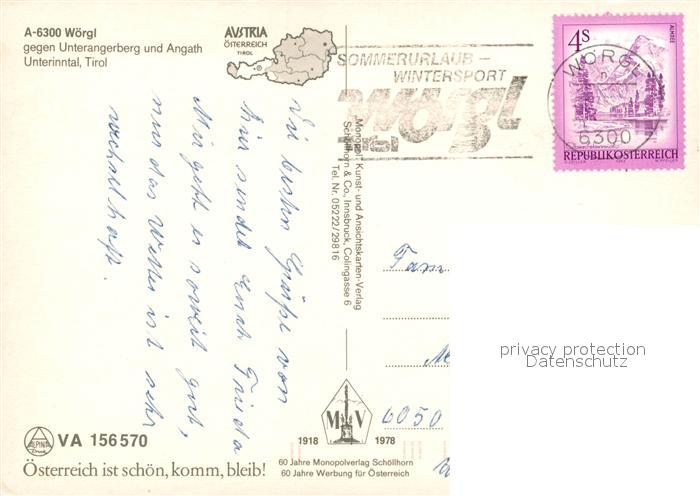 A-6300 Wörgl
gegen Unterangerberg und Angath
Unterinntal, Tirol
AVSTRIA
ÖSTERREICH
TIROL
SOMMERURLAUB -
WINTERSPORT
wörgl
tirol
WÖRGL
6300
4s
ALMSEE
REPUBLIK ÖSTERREICH
Die besten Grüße von
hier sendet Euch Frieda
Mir geht es soweit gut,
nur das Wetter ist sehr
wechselhaft.
Monopol Kunst- und Ansichtskarten-Verlag
Schöllhorn & Co., Innsbruck, Colingasse 6
Tel. Nr. 05222/29816
Fam
6050
privacy protection
Datenschutz
ALPINA
Druck
VA 156570
Österreich ist schön, komm, bleib!
M V
1918 1978
60 Jahre Monopolverlag Schöllhorn
60 Jahre Werbung für Österreich